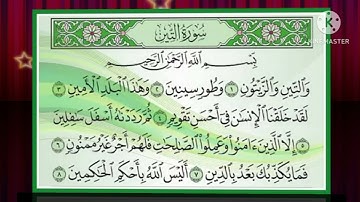 سُورَةُ التِّينِ
بِسْمِ اللَّهِ الرَّحْمَٰنِ الرَّحِيمِ
وَالتِّينِ وَالزَّيْتُونِ ١ وَطُورِ سِينِينَ ٢ وَهَٰذَا الْبَلَدِ الْأَمِينِ ٣
لَقَدْ خَلَقْنَا الْإِنسَٰنَ فِي أَحْسَنِ تَقْوِيمٍ ٤ ثُمَّ رَدَدْنَٰهُ أَسْفَلَ سَٰفِلِينَ
٥ إِلَّا الَّذِينَ ءَامَنُوا وَعَمِلُوا الصَّٰلِحَٰتِ فَلَهُمْ أَجْرٌ غَيْرُ مَمْنُونٍ ٦
فَمَا يُكَذِّبُكَ بَعْدُ بِالدِّينِ ٧ أَلَيْسَ اللَّهُ بِأَحْكَمِ الْحَٰكِمِينَ ٨
K
KINEMASTER